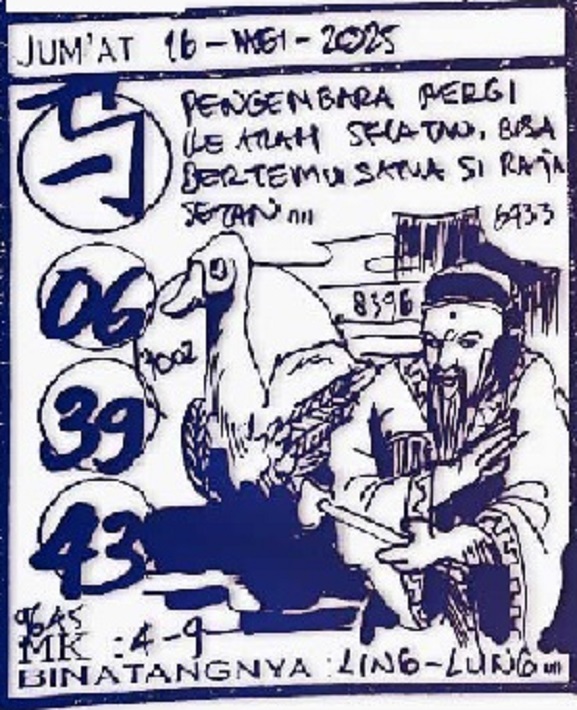 JUM'AT 16-MEI-2025
PENGEMBARA PERGI
KE ARAH SELATAN. BISA
BERTEMU SATNA SI RAJA
SETAN
6433
06
8396
7002
39
43
MK : 4-9
BINATANGNYA : LING-LUNG